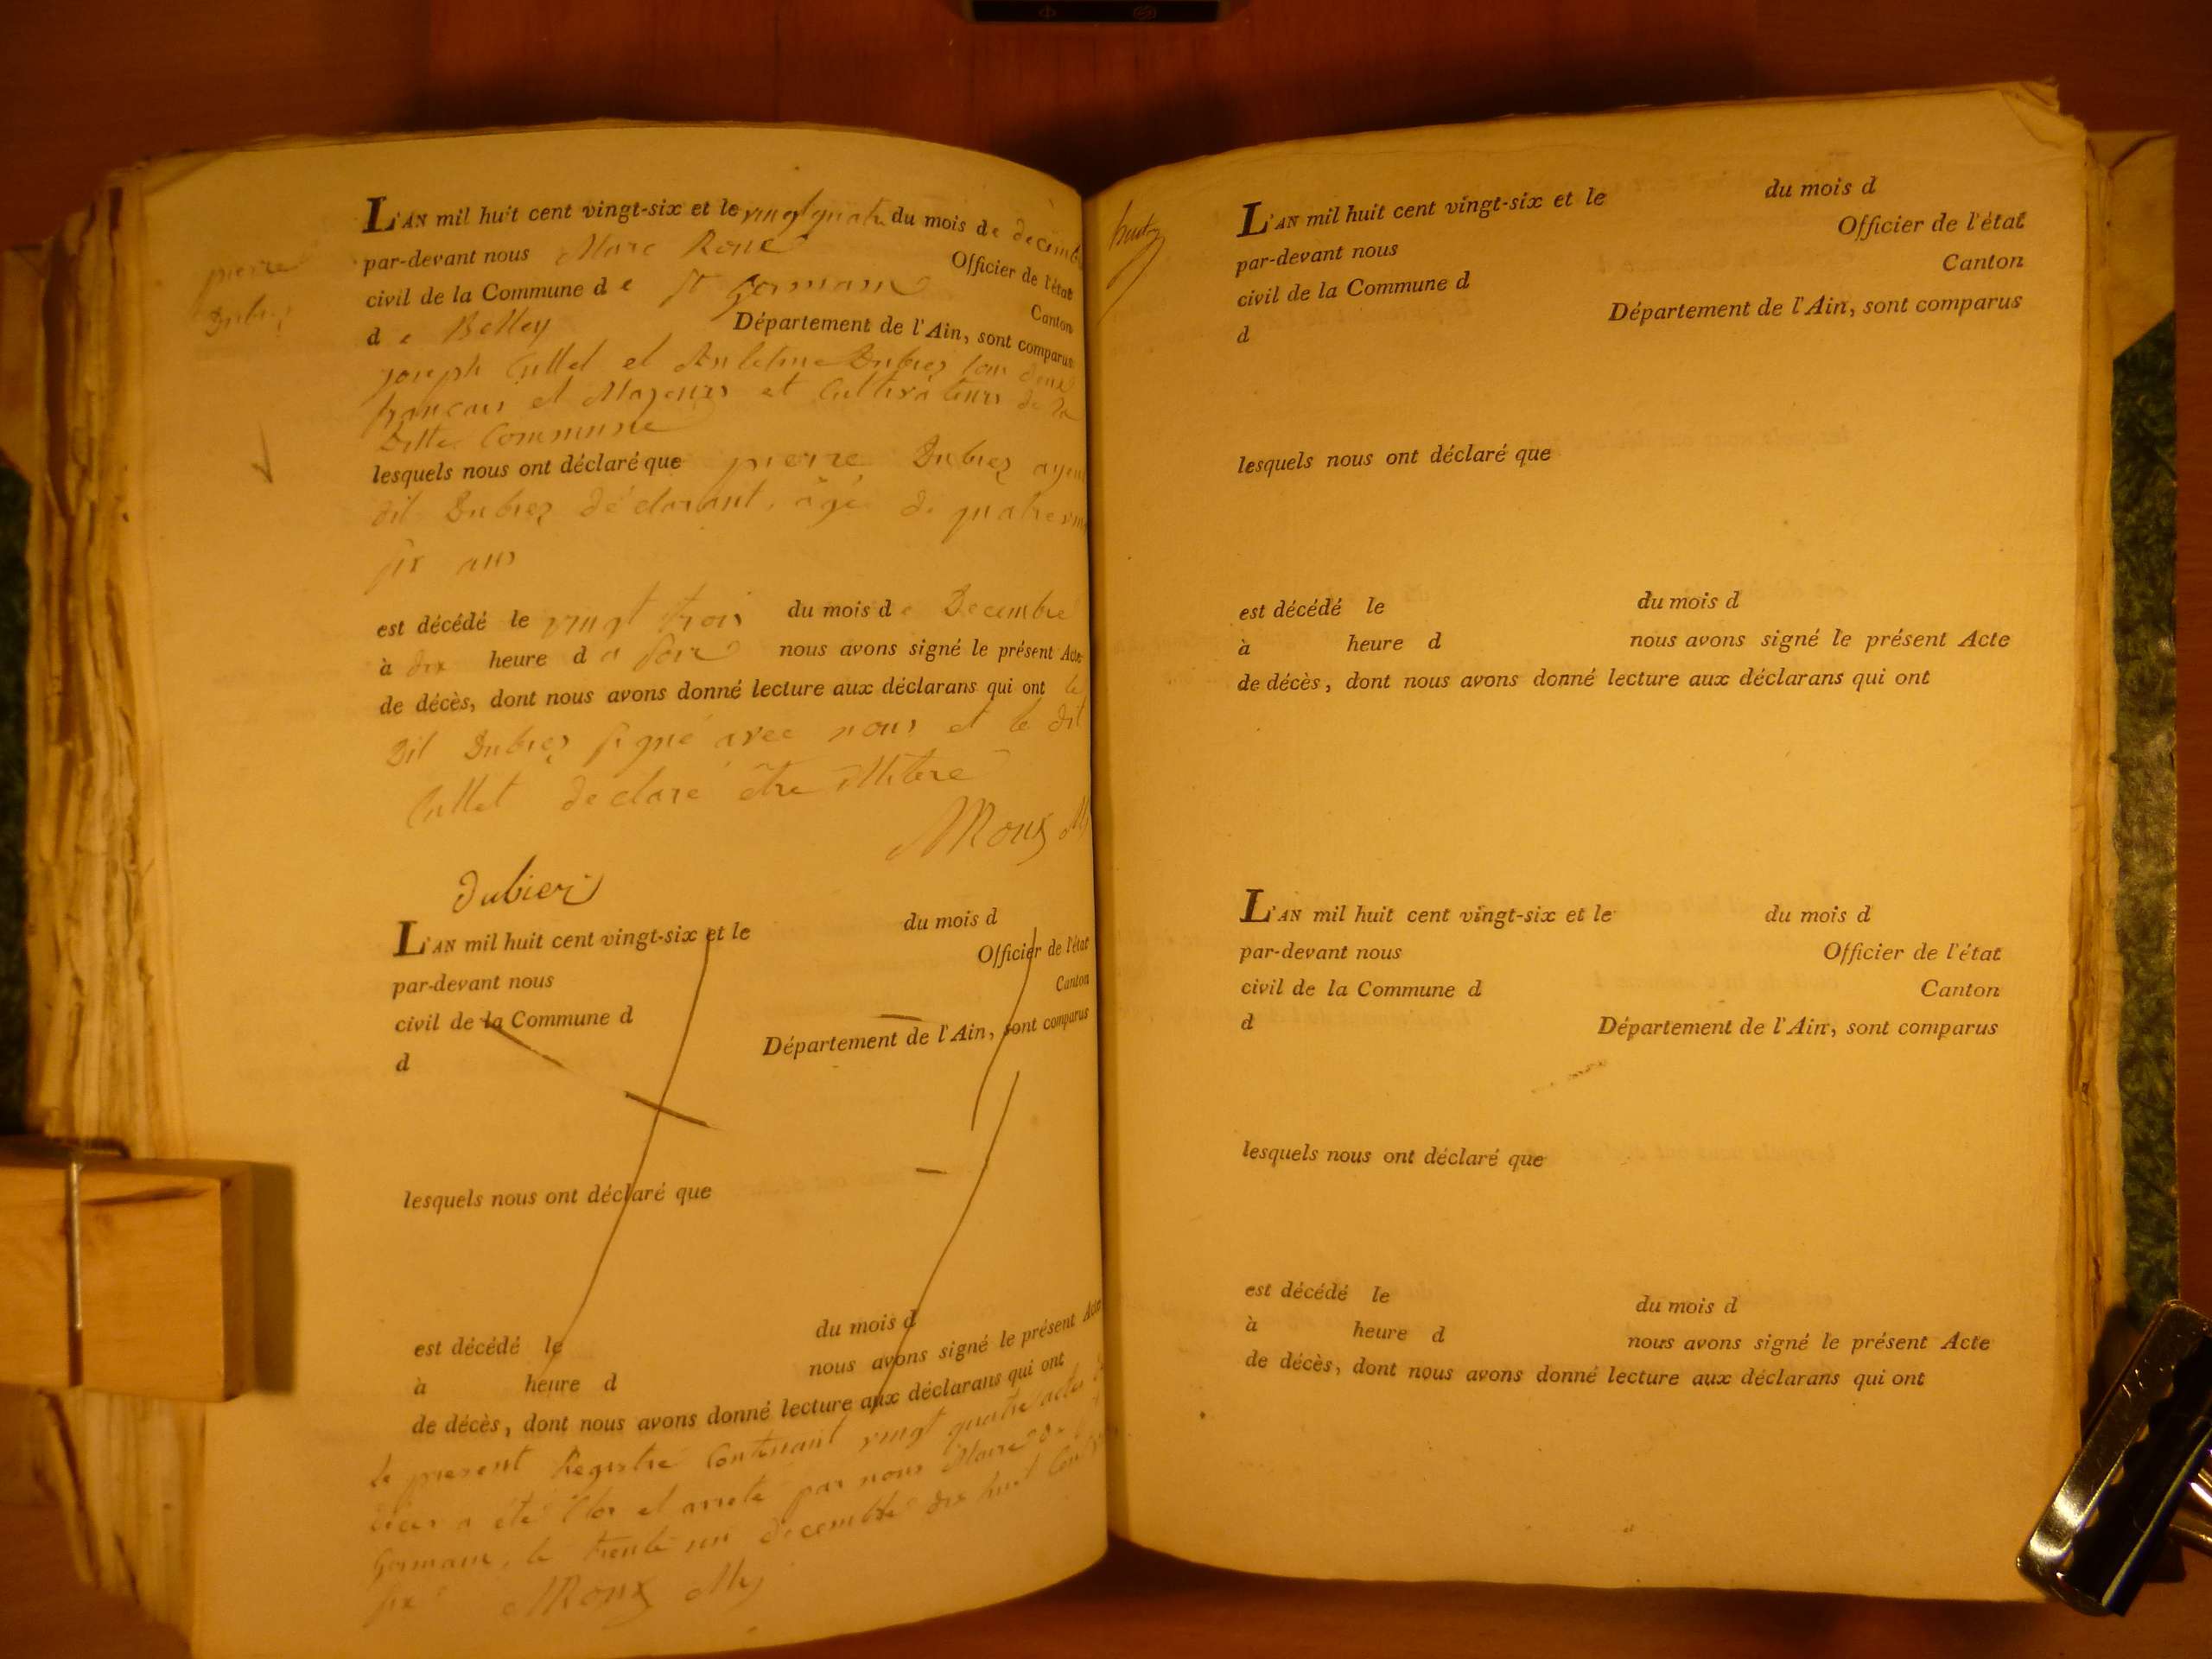 pierre
L'AN mil huit cent vingt-six et le vingt quatre du mois de decemb
par-devant nous Marc Roux Officier de l'état
civil de la Commune de St Germain Canton
de Belley Département de l'Ain, sont comparus
joseph Cullet et Anthelme Dubiez tous deux
français et Majeurs et Cultivateurs de la
Ditte Commune
lesquels nous ont déclaré que pierre Dubiez
dit Dubiez déclarant, âgé de quatre
six ans
est décédé le vingt trois du mois de Decembre
à dix heure du soir nous avons signé le présent Acte
de décès, dont nous avons donné lecture aux déclarans qui ont le
Dit Dubiez signé avec nous et le dit
Cullet déclaré être illitere
MRoux
dubiez
L'AN mil huit cent vingt-six et le du mois d
par-devant nous Officier de l'état
civil de la Commune d Canton
d Département de l'Ain, sont comparus
lesquels nous ont déclaré que
est décédé le du mois d
à heure d nous avons signé le présent Acte
de décès, dont nous avons donné lecture aux déclarans qui ont
le present Registre Contenant vingt quatre actes
a été Clos et areté par nous Maire de
Germain, le trente un decembre dix huit Cent
six
MRoux
L'AN mil huit cent vingt-six et le du mois d
par-devant nous Officier de l'état
civil de la Commune d Canton
d Département de l'Ain, sont comparus
lesquels nous ont déclaré que
est décédé le du mois d
à heure d nous avons signé le présent Acte
de décès, dont nous avons donné lecture aux déclarans qui ont
L'AN mil huit cent vingt-six et le du mois d
par-devant nous Officier de l'état
civil de la Commune d Canton
d Département de l'Ain, sont comparus
lesquels nous ont déclaré que
est décédé le du mois d
à heure d nous avons signé le présent Acte
de décès, dont nous avons donné lecture aux déclarans qui ont